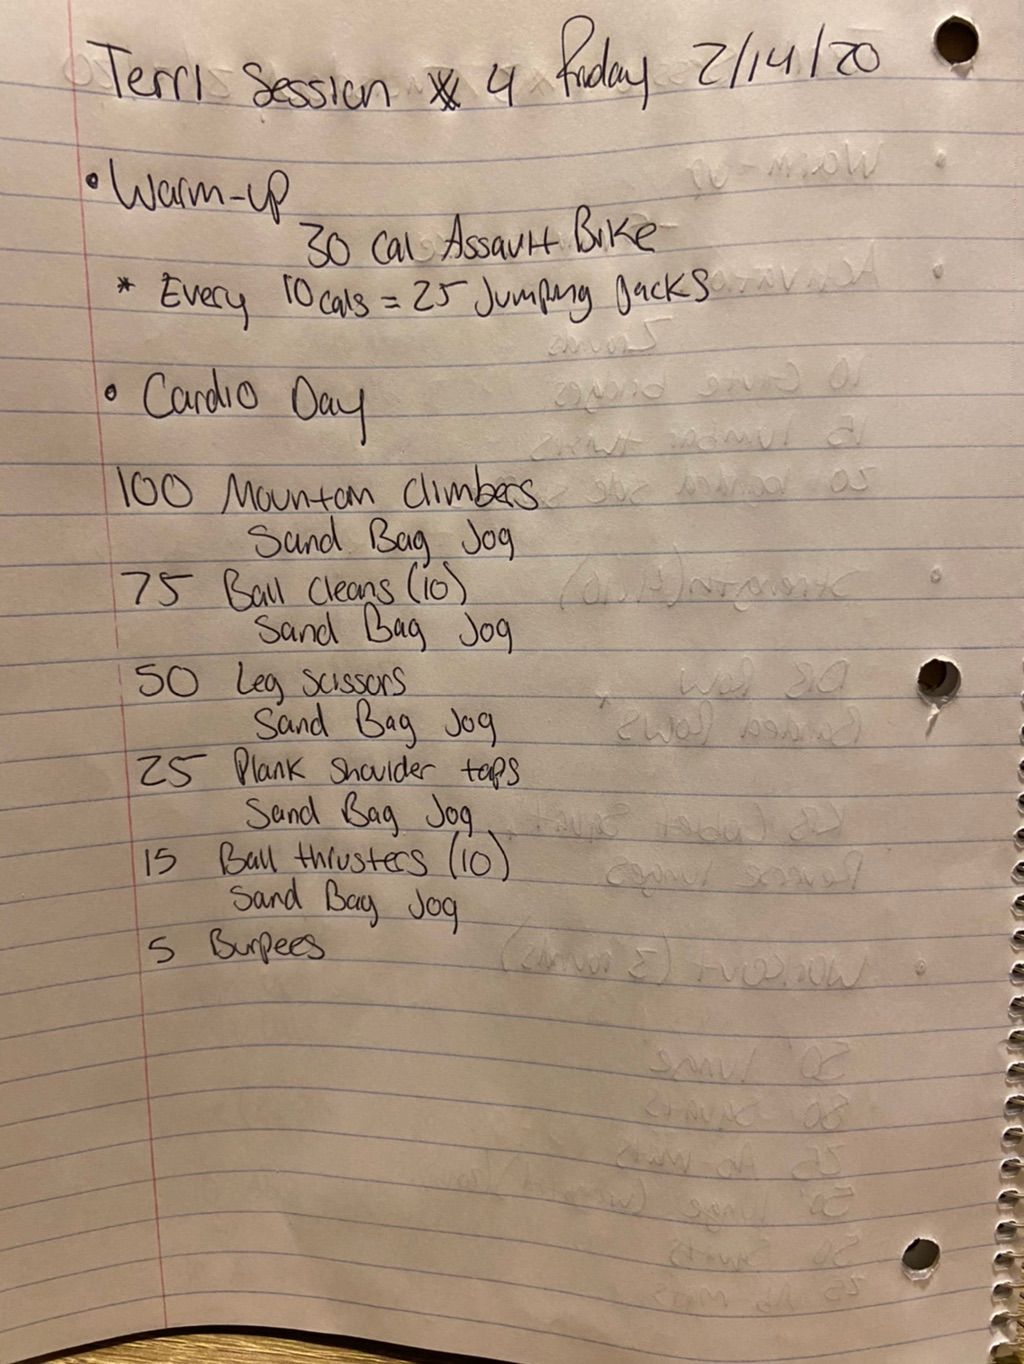 Terri Session # 4 Friday 2/14/20
• Warm-up
30 Cal Assault Bike
* Every 10 cals = 25 Jumping Jacks
• Cardio Day
100 Mountain Climbers
Sand Bag Jog
75 Ball Cleans (10)
Sand Bag Jog
50 Leg Scissors
Sand Bag Jog
25 Plank Shoulder taps
Sand Bag Jog
15 Ball thrusters (10)
Sand Bag Jog
5 Burpees